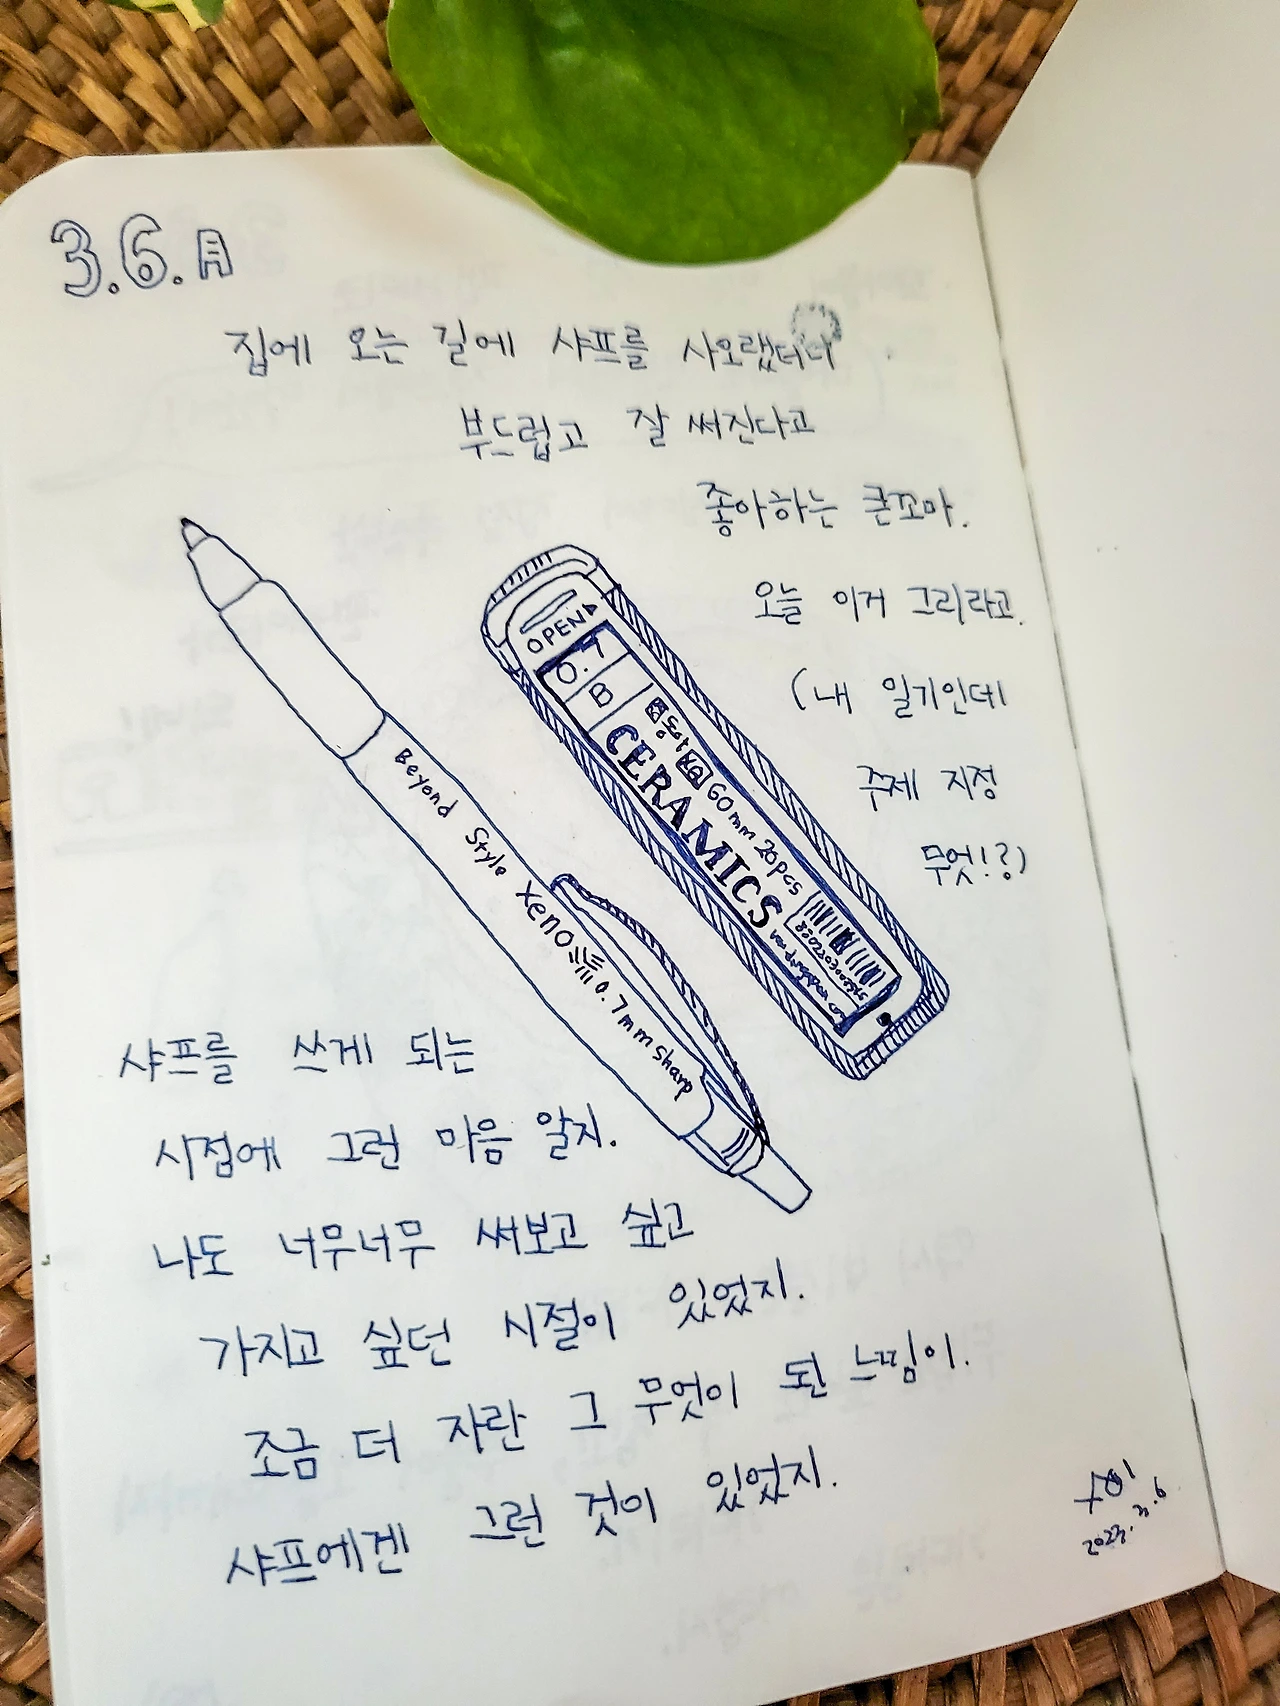 3.6.月
집에 오는 길에 샤프를 사오랬더니
부드럽고 잘 써진다고
좋아하는 큰꼬마.
오늘 이거 그리라고.
(내 일기인데
주제 지정
무엇!?)
OPEN
0.7
B
동아 60mm 20pcs
CERAMICS
Beyond Style Xeno 0.7mm sharp
샤프를 쓰게 되는
시점에 그런 마음 알지.
나도 너무너무 써보고 싶고
가지고 싶던 시절이 있었지.
조금 더 자란 그 무엇이 된 느낌이.
샤프에겐 그런 것이 있었지.
2023.3.6